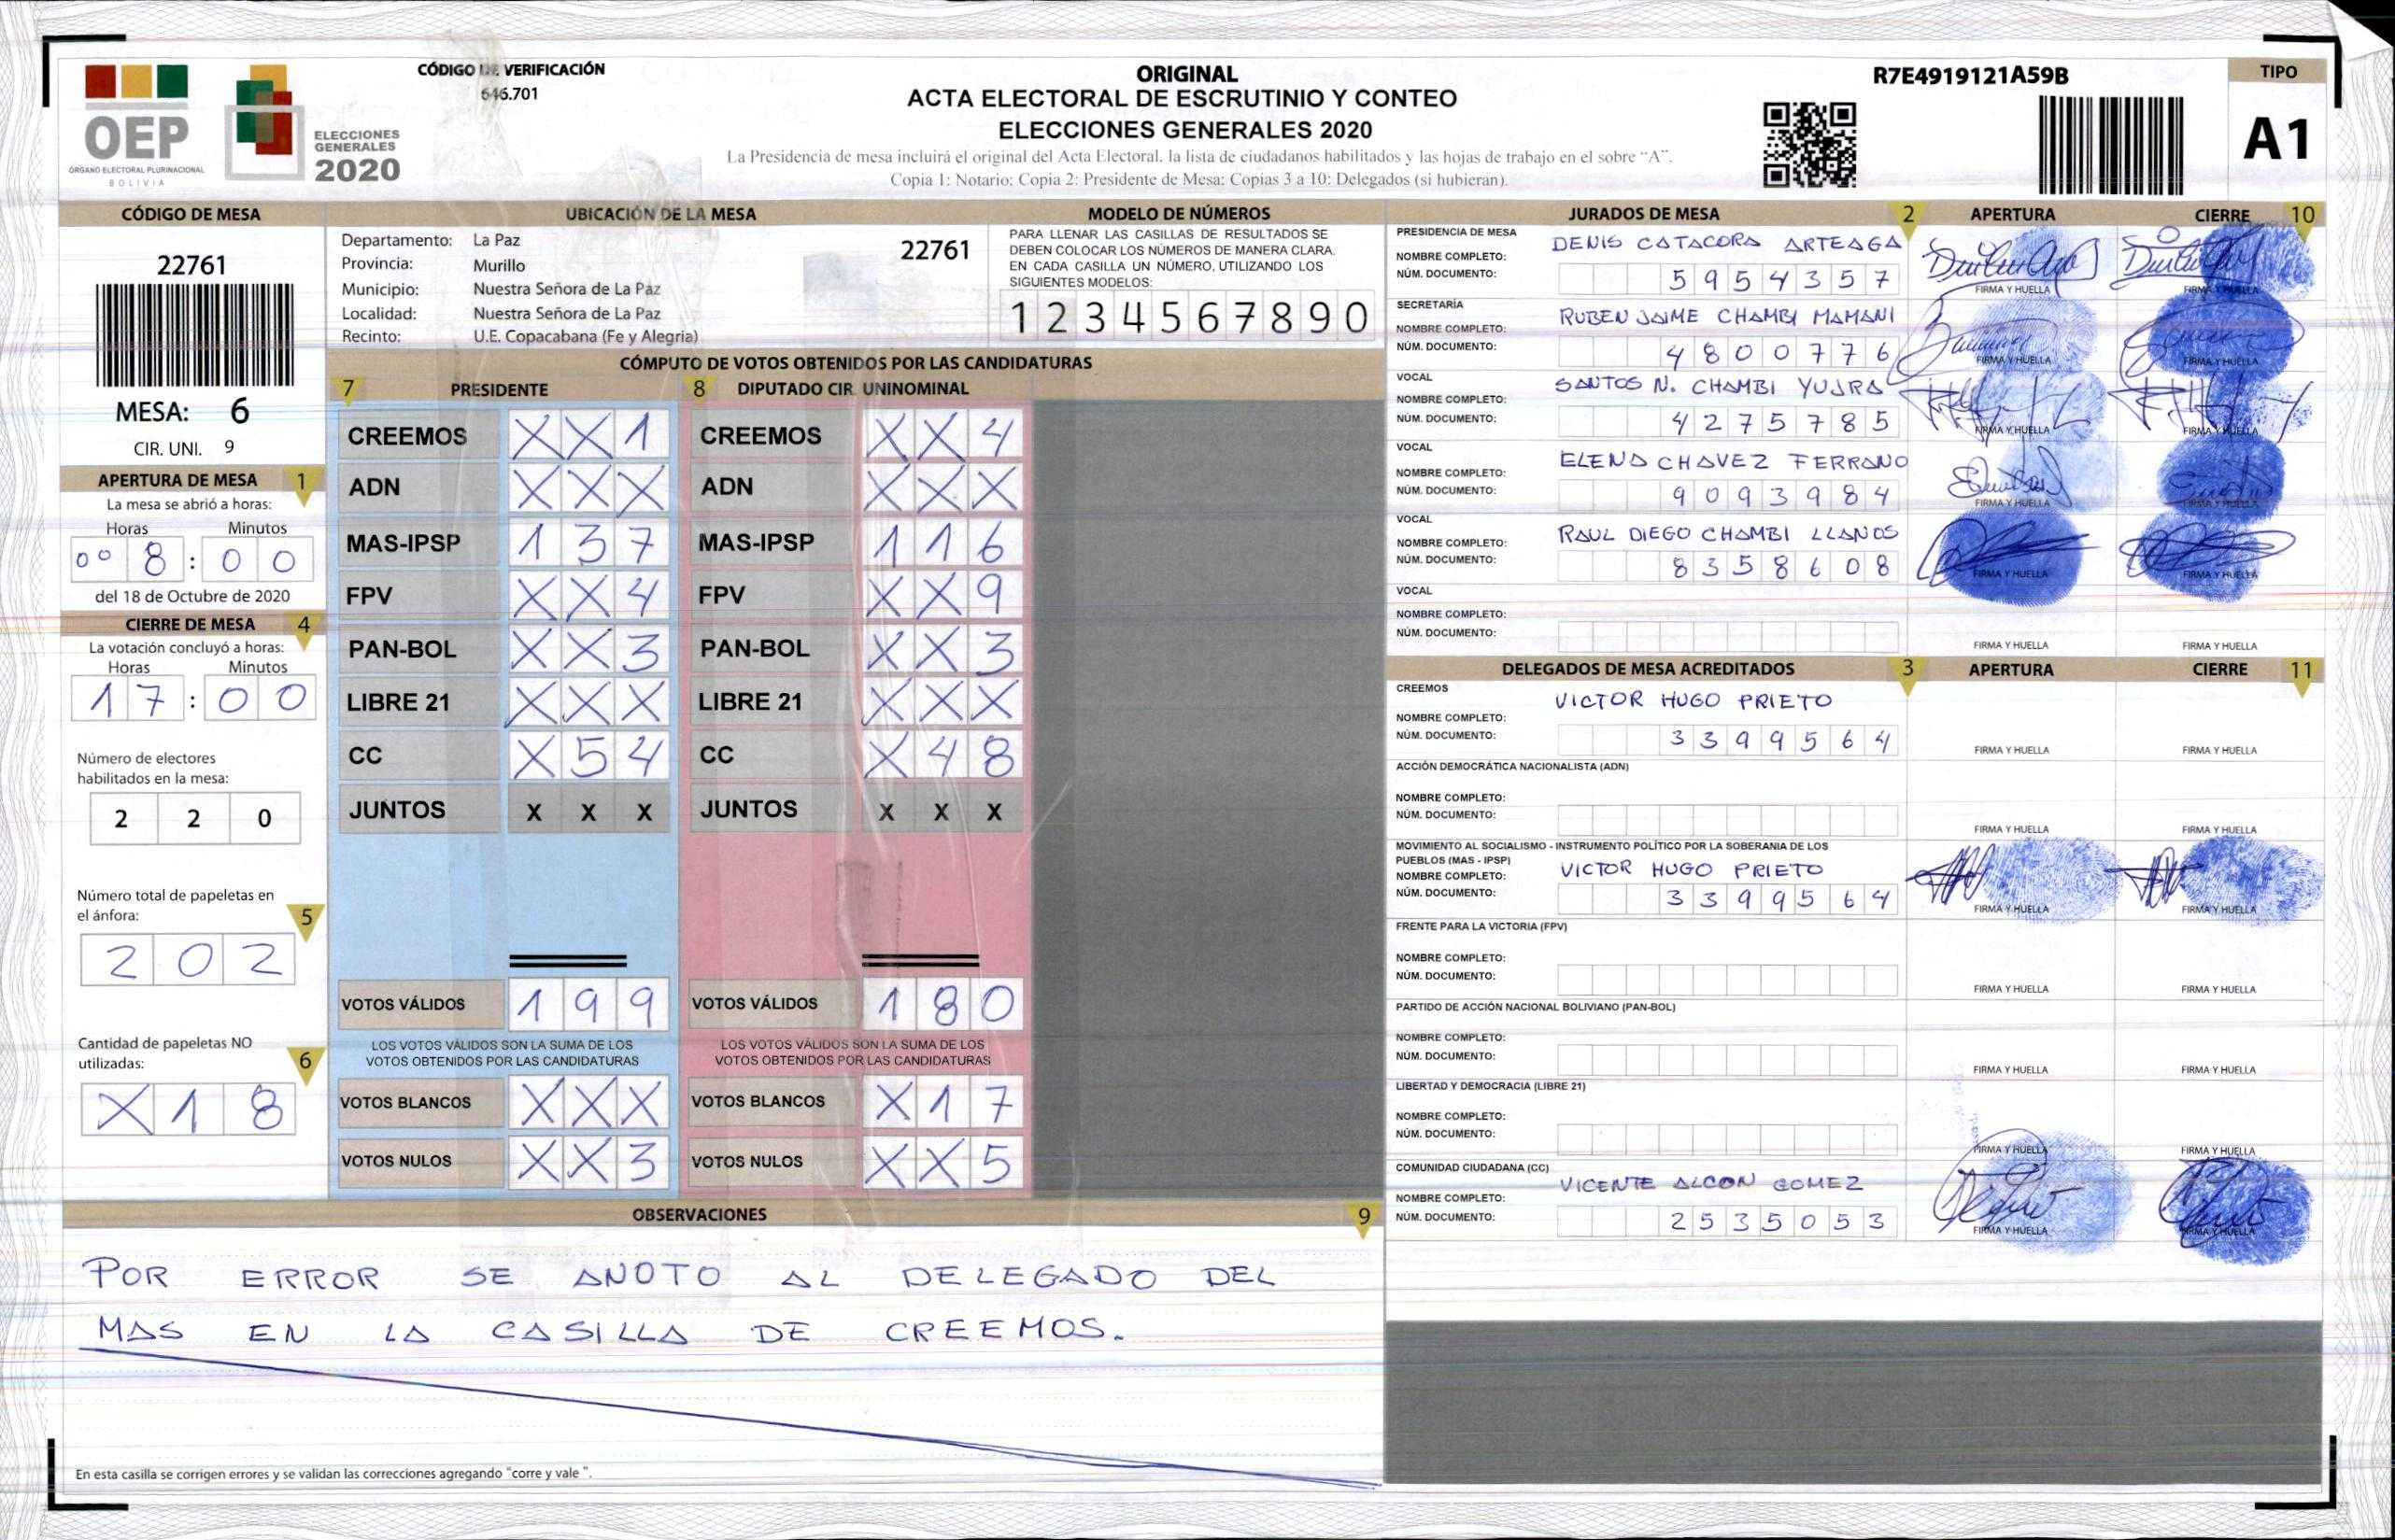 OEP
ÓRGANO ELECTORAL PLURINACIONAL
BOLIVIA
ELECCIONES
GENERALES
2020
CÓDIGO DE VERIFICACIÓN
646.701
ORIGINAL
ACTA ELECTORAL DE ESCRUTINIO Y CONTEO
ELECCIONES GENERALES 2020
La Presidencia de mesa incluirá el original del Acta Electoral, la lista de ciudadanos habilitados y las hojas de trabajo en el sobre "A".
Copia 1: Notario; Copia 2: Presidente de Mesa; Copias 3 a 10: Delegados (si hubieran).
R7E4919121A59B
TIPO
A1
CÓDIGO DE MESA
22761
MESA: 6
CIR. UNI. 9
APERTURA DE MESA 1
La mesa se abrió a horas:
Horas Minutos
0 8 : 0 0
del 18 de Octubre de 2020
CIERRE DE MESA 4
La votación concluyó a horas:
Horas Minutos
1 7 : 0 0
Número de electores
habilitados en la mesa:
2 2 0
Número total de papeletas en
el ánfora: 5
2 0 2
Cantidad de papeletas NO
utilizadas: 6
X 1 8
UBICACIÓN DE LA MESA
Departamento: La Paz
22761
Provincia: Murillo
Municipio: Nuestra Señora de La Paz
Localidad: Nuestra Señora de La Paz
Recinto: U.E. Copacabana (Fe y Alegria)
MODELO DE NÚMEROS
PARA LLENAR LAS CASILLAS DE RESULTADOS SE
DEBEN COLOCAR LOS NÚMEROS DE MANERA CLARA.
EN CADA CASILLA UN NÚMERO, UTILIZANDO LOS
SIGUIENTES MODELOS:
1 2 3 4 5 6 7 8 9 0
CÓMPUTO DE VOTOS OBTENIDOS POR LAS CANDIDATURAS
7 PRESIDENTE
CREEMOS X X 1
ADN X X X
MAS-IPSP 1 3 7
FPV X X 4
PAN-BOL X X 3
LIBRE 21 X X X
CC X 5 4
JUNTOS X X X
VOTOS VÁLIDOS 1 9 9
LOS VOTOS VÁLIDOS SON LA SUMA DE LOS
VOTOS OBTENIDOS POR LAS CANDIDATURAS
VOTOS BLANCOS X X X
VOTOS NULOS X X 3
8 DIPUTADO CIR. UNINOMINAL
CREEMOS X X 4
ADN X X X
MAS-IPSP 1 1 6
FPV X X 9
PAN-BOL X X 3
LIBRE 21 X X X
CC X 4 8
JUNTOS X X X
VOTOS VÁLIDOS 1 8 0
LOS VOTOS VÁLIDOS SON LA SUMA DE LOS
VOTOS OBTENIDOS POR LAS CANDIDATURAS
VOTOS BLANCOS X 1 7
VOTOS NULOS X X 5
OBSERVACIONES 9
POR ERROR SE ANOTO AL DELEGADO DEL
MAS EN LA CASILLA DE CREEMOS.
En esta casilla se corrigen errores y se validan las correcciones agregando "corre y vale ".
JURADOS DE MESA 2 APERTURA CIERRE 10
PRESIDENCIA DE MESA
NOMBRE COMPLETO: DENIS CATACORA ARTEAGA
NÚM. DOCUMENTO: 5 9 5 4 3 5 7
FIRMA Y HUELLA FIRMA Y HUELLA
SECRETARÍA
NOMBRE COMPLETO: RUBEN JAIME CHAMBI MAMANI
NÚM. DOCUMENTO: 4 8 0 0 7 7 6
FIRMA Y HUELLA FIRMA Y HUELLA
VOCAL
NOMBRE COMPLETO: SANTOS N. CHAMBI YUJRA
NÚM. DOCUMENTO: 4 2 7 5 7 8 5
FIRMA Y HUELLA FIRMA Y HUELLA
VOCAL
NOMBRE COMPLETO: ELENA CHAVEZ FERRANO
NÚM. DOCUMENTO: 9 0 9 3 9 8 4
FIRMA Y HUELLA FIRMA Y HUELLA
VOCAL
NOMBRE COMPLETO: RAUL DIEGO CHAMBI LLANOS
NÚM. DOCUMENTO: 8 3 5 8 6 0 8
FIRMA Y HUELLA FIRMA Y HUELLA
VOCAL
NOMBRE COMPLETO:
NÚM. DOCUMENTO:
FIRMA Y HUELLA FIRMA Y HUELLA
DELEGADOS DE MESA ACREDITADOS 3 APERTURA CIERRE 11
CREEMOS
NOMBRE COMPLETO: VICTOR HUGO PRIETO
NÚM. DOCUMENTO: 3 3 9 9 5 6 4
FIRMA Y HUELLA FIRMA Y HUELLA
ACCIÓN DEMOCRÁTICA NACIONALISTA (ADN)
NOMBRE COMPLETO:
NÚM. DOCUMENTO:
FIRMA Y HUELLA FIRMA Y HUELLA
MOVIMIENTO AL SOCIALISMO - INSTRUMENTO POLÍTICO POR LA SOBERANIA DE LOS
PUEBLOS (MAS - IPSP)
NOMBRE COMPLETO: VICTOR HUGO PRIETO
NÚM. DOCUMENTO: 3 3 9 9 5 6 4
FIRMA Y HUELLA FIRMA Y HUELLA
FRENTE PARA LA VICTORIA (FPV)
NOMBRE COMPLETO:
NÚM. DOCUMENTO:
FIRMA Y HUELLA FIRMA Y HUELLA
PARTIDO DE ACCIÓN NACIONAL BOLIVIANO (PAN-BOL)
NOMBRE COMPLETO:
NÚM. DOCUMENTO:
FIRMA Y HUELLA FIRMA Y HUELLA
LIBERTAD Y DEMOCRACIA (LIBRE 21)
NOMBRE COMPLETO:
NÚM. DOCUMENTO:
FIRMA Y HUELLA FIRMA Y HUELLA
COMUNIDAD CIUDADANA (CC)
NOMBRE COMPLETO: VICENTE ALCON GOMEZ
NÚM. DOCUMENTO: 2 5 3 5 0 5 3
FIRMA Y HUELLA FIRMA Y HUELLA